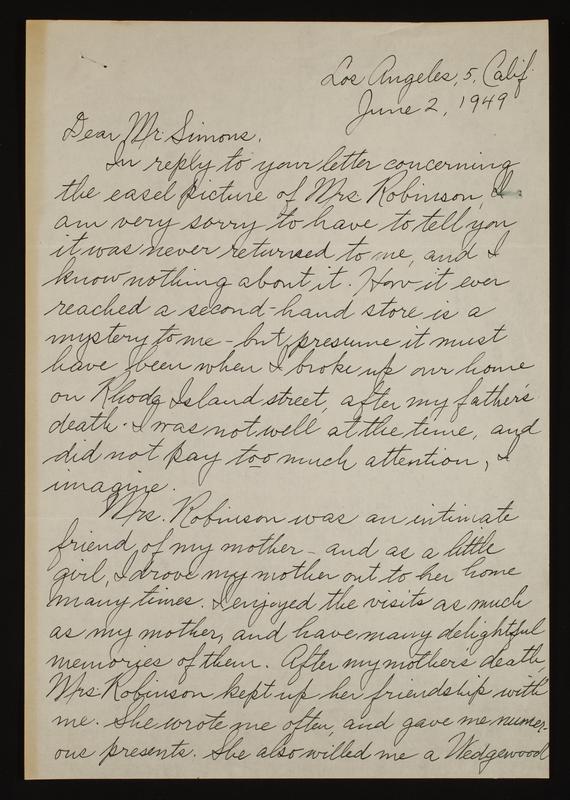 Los Angeles, 5, Calif.
June 2, 1949
Dear Mr. Simons.
In reply to your letter concerning
the easel picture of Mrs. Robinson, I
am very sorry to have to tell you
it was never returned to me, and I
know nothing about it. How it ever
reached a second-hand store is a
mystery to me - but I presume it must
have been when I broke up our home
on Rhode Island street, after my father's
death. I was not well at the time, and
did not pay too much attention, I
imagine.
Mrs. Robinson was an intimate
friend of my mother - and as a little
girl, I drove my mother out to her home
many times. I enjoyed the visits as much
as my mother, and have many delightful
memories of them. After my mother's death,
Mrs. Robinson kept up her friendship with
me. She wrote me often, and gave me numer-
ous presents. She also willed me a Wedgewood